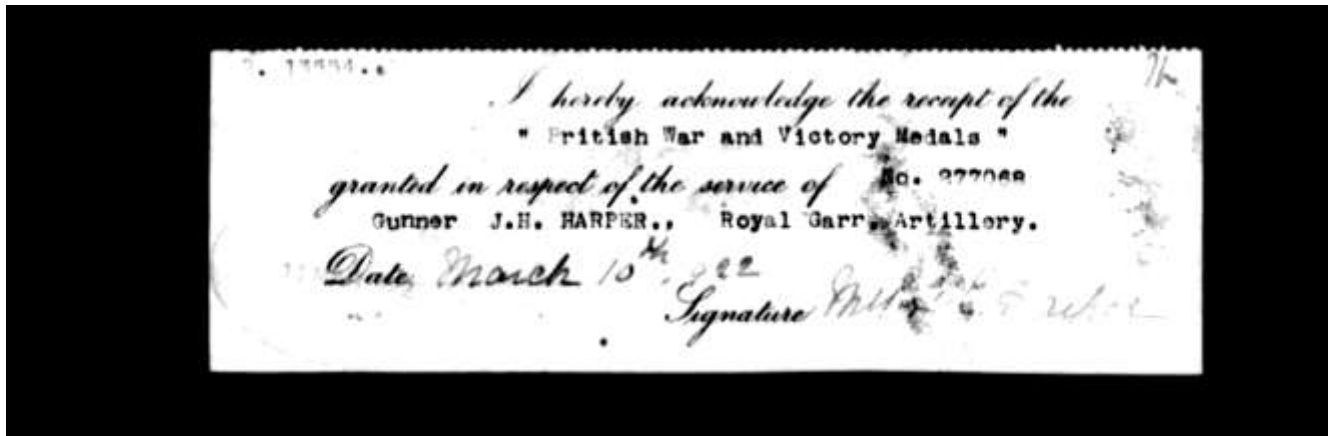 I hereby acknowledge the receipt of the
" British War and Victory Medals "
granted in respect of the service of No. 277068
Gunner J.H. HARPER., Royal Garr. Artillery.
Date March 10th 1922
Signature